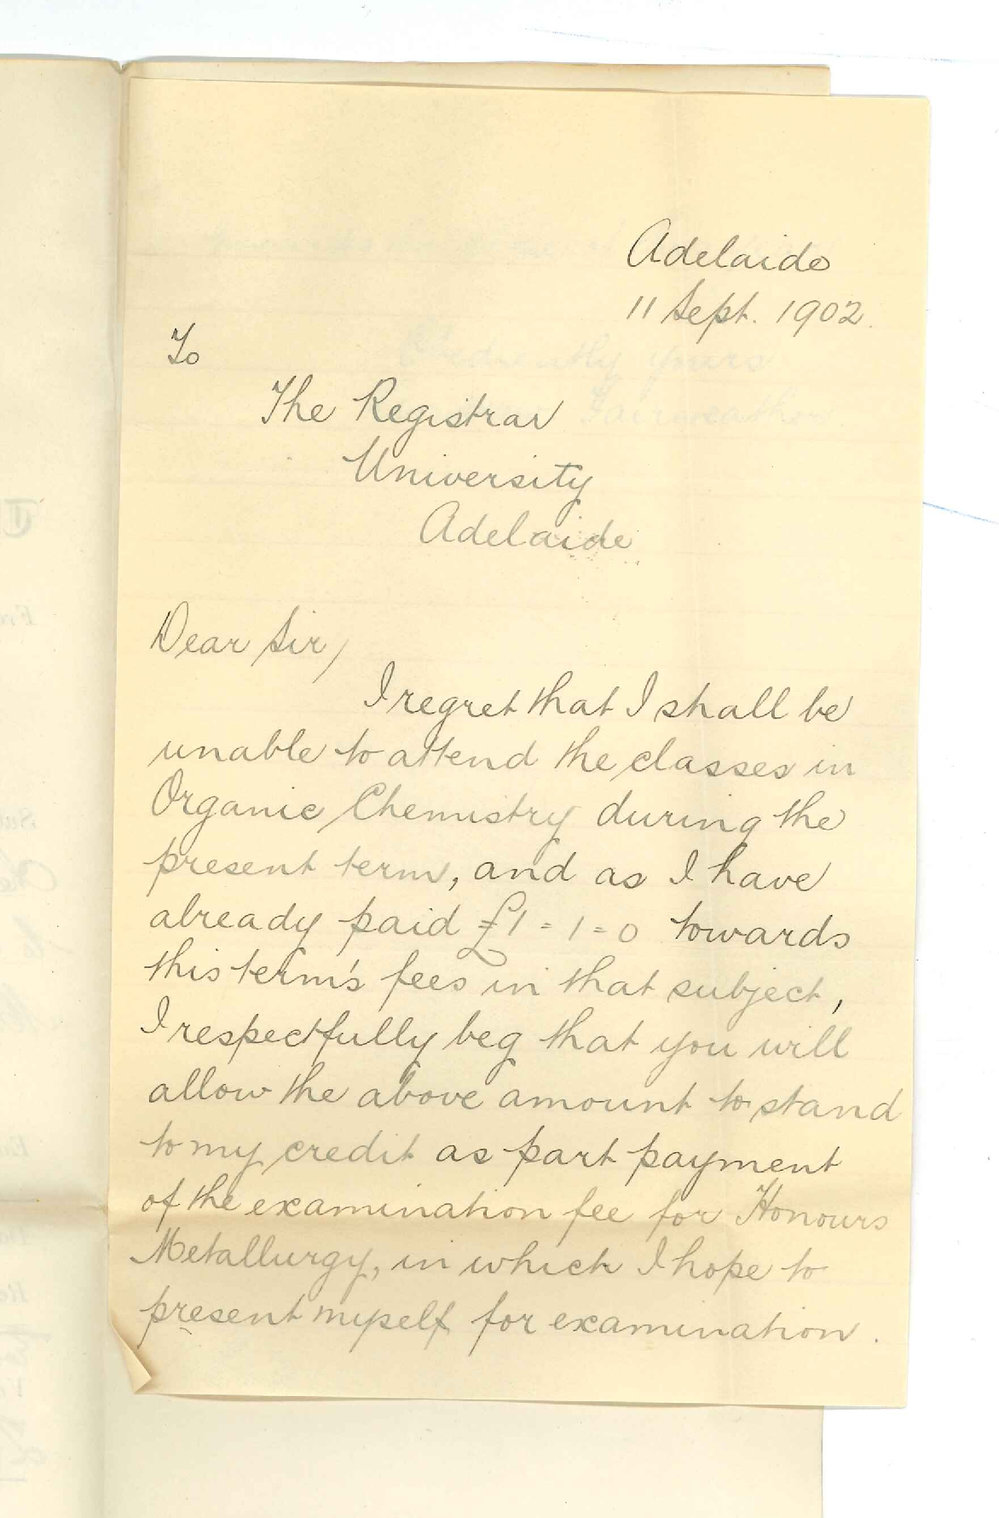 Adelaide
11 Sept. 1902.
To
The Registrar
University
Adelaide
Dear Sir,
I regret that I shall be
unable to attend the classes in
Organic Chemistry during the
present term, and as I have
already paid £1=1=0 towards
this term's fees in that subject,
I respectfully beg that you will
allow the above amount to stand
to my credit as part payment
of the examination fee for Honours
Metallurgy, in which I hope to
present myself for examination.